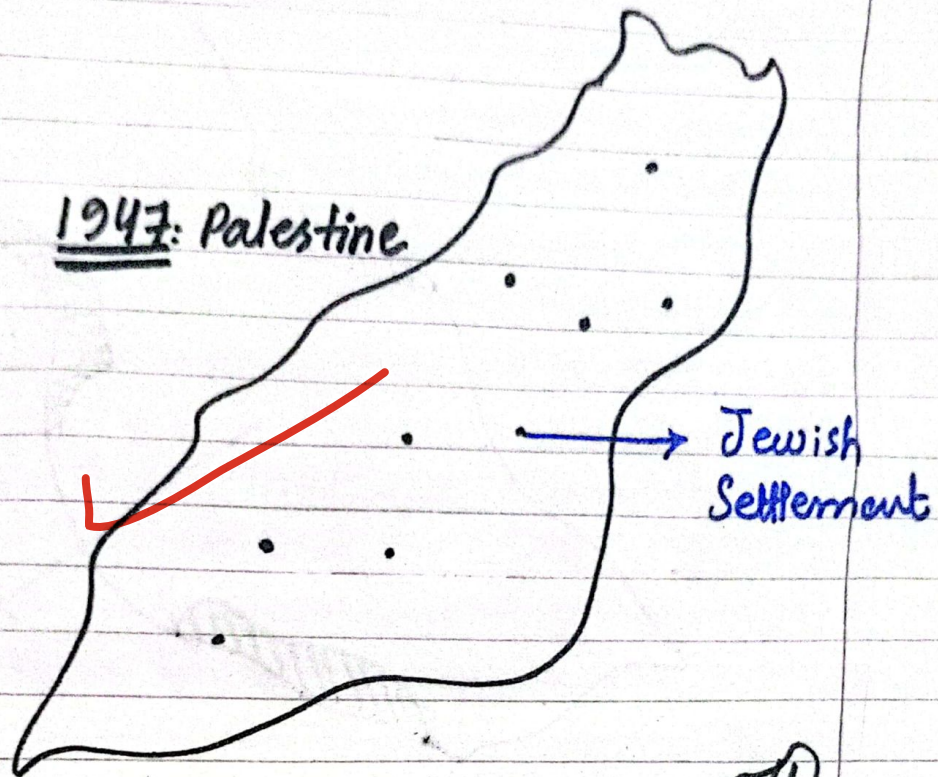 1947: Palestine
Jewish
Settlement